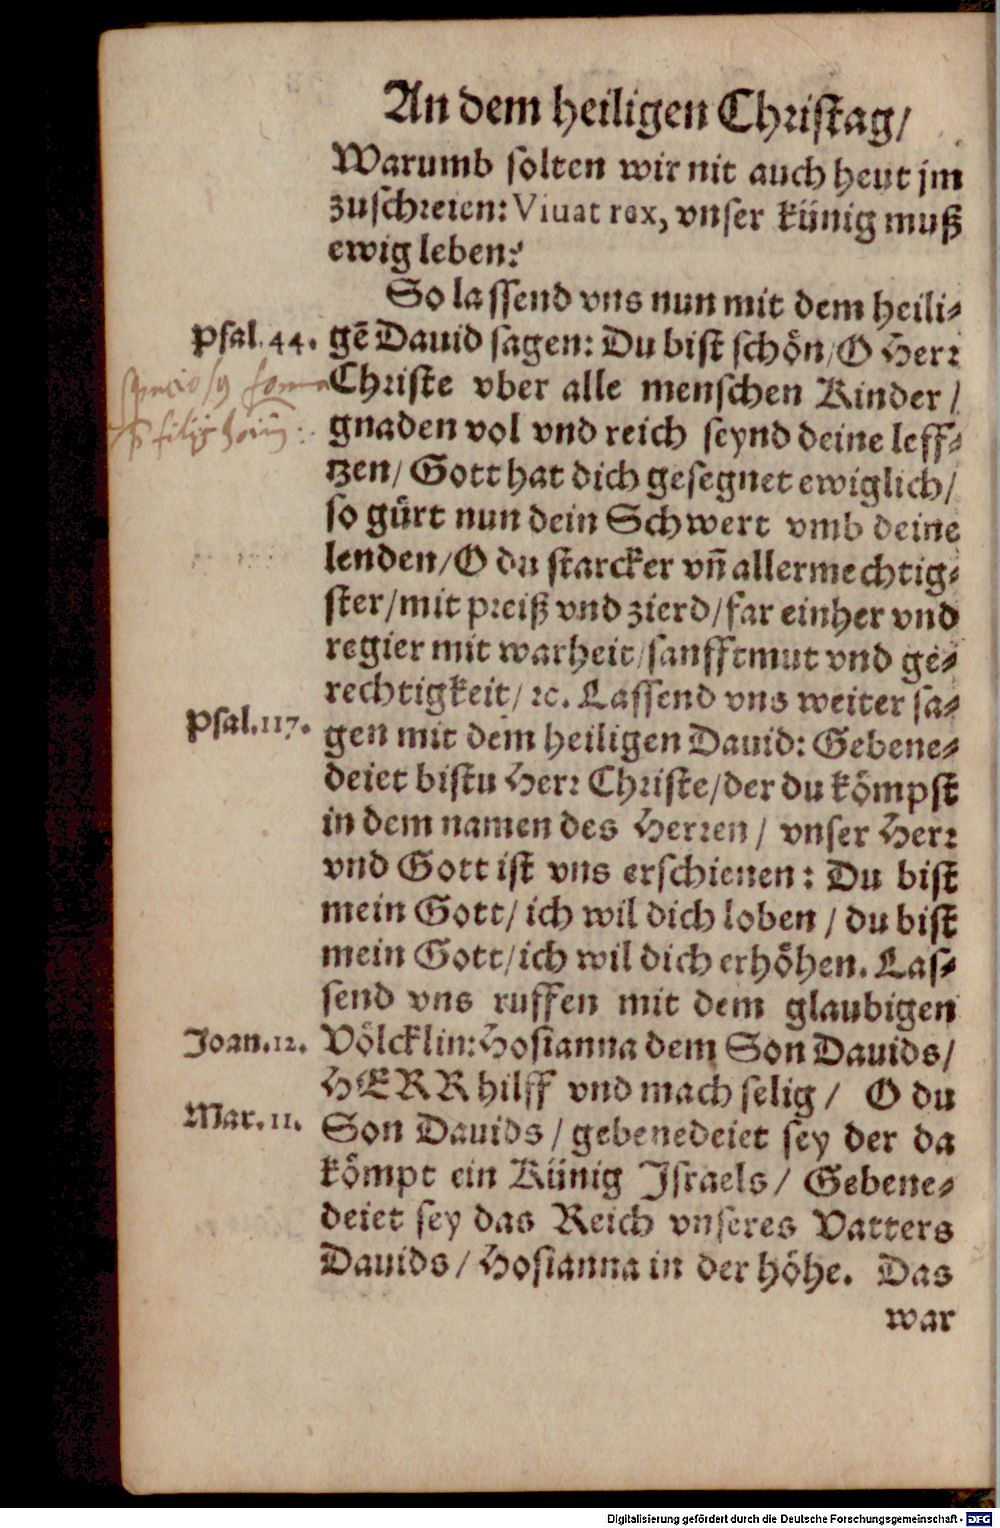 An dem heiligen Christag/
Warumb solten wir nit auch heut jm
zuschreien: Viuat rex, vnser künig muß
ewig leben?
So lassend vns nun mit dem heili⸗
Psal. 44.
gē Dauid sagen: Du bist schön/ O Herr
Christe vber alle menschen Kinder/
speciosus forma
filijs
gnaden vol vnd reich seynd deine leff⸗
tzen/ Gott hat dich gesegnet ewiglich/
so gürt nun dein Schwert vmb deine
lenden/ O du starcker vñ allermechtig⸗
ster/ mit preiß vnd zierd/ far einher vnd
regier mit warheit/ sanfftmut vnd ge⸗
rechtigkeit/ ꝛc. Lassend vns weiter sa⸗
Psal. 117.
gen mit dem heiligen Dauid: Gebene⸗
deiet bistu Herr Christe/ der du kömpst
in dem namen des Herren/ vnser Herr
vnd Gott ist vns erschienen: Du bist
mein Gott/ ich wil dich loben/ du bist
mein Gott/ ich wil dich erhöhen. Las⸗
send vns ruffen mit dem glaubigen
Joan. 12.
Völcklin: Hosianna dem Son Dauids/
HERR hilff vnd mach selig/ O du
Mar. 11.
Son Dauids/ gebenedeiet sey der da
kömpt ein Künig Israels/ Gebene⸗
deiet sey das Reich vnseres Vatters
Dauids/ Hosianna in der höhe. Das
war
Digitalisierung gefördert durch die Deutsche Forschungsgemeinschaft - DFG